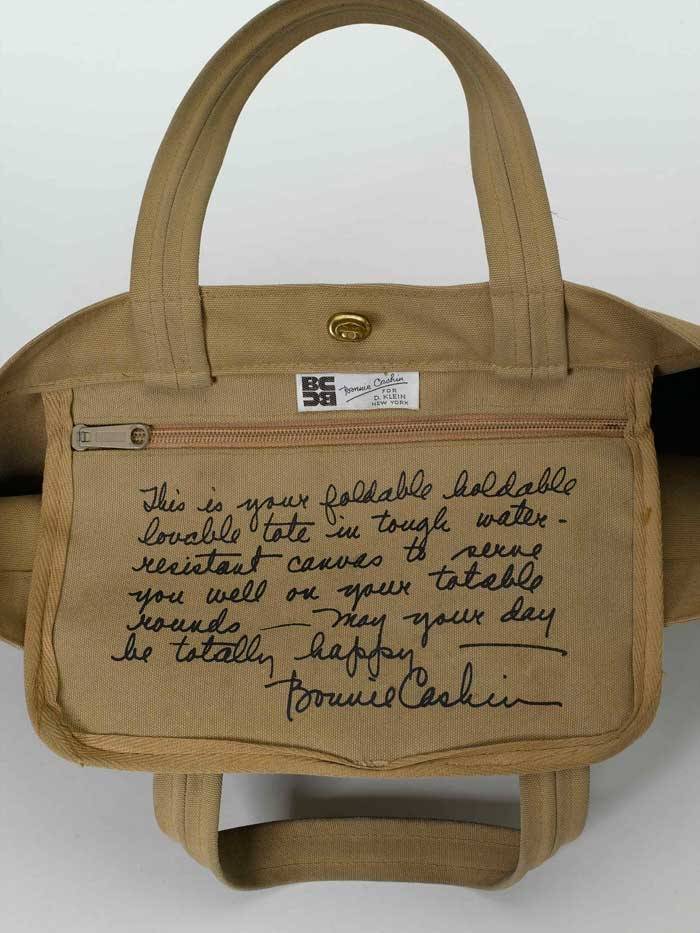 BC
BC
Bonnie Cashin
FOR
D. KLEIN
NEW YORK
This is your foldable holdable
lovable tote in tough water-
resistant canvas to serve
you well on your totable
rounds — may your day
be totally happy —
Bonnie Cashin